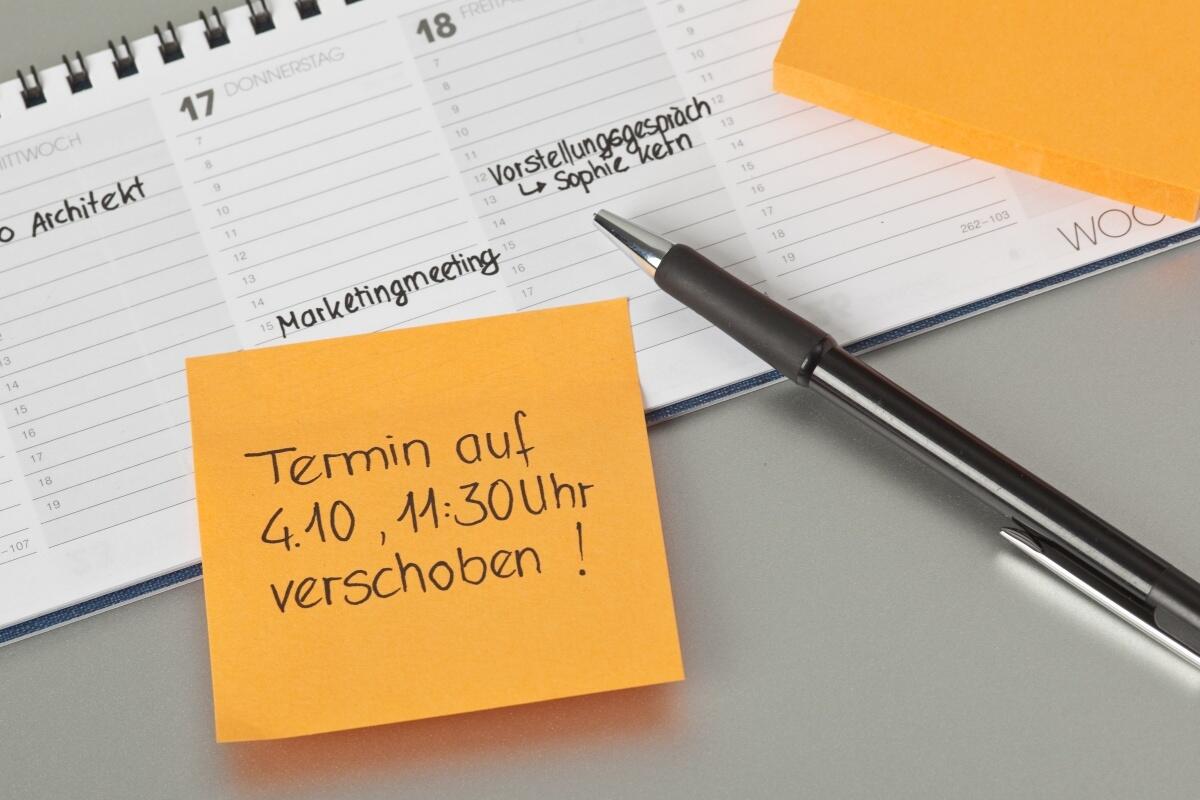 17 DONNERSTAG
7
8
9
10
11
12
13
14
15 Marketingmeeting
18
7
8
9
10
11
12 Vorstellungsgespräch
13 ↳ Sophie Kern
14
15
16
17
Architekt
13
14
15
16
17
18
19
-107
8
9
10
11
12
13
14
15
16
17
18
19
262-103
Termin auf
4.10 , 11:30 Uhr
verschoben !